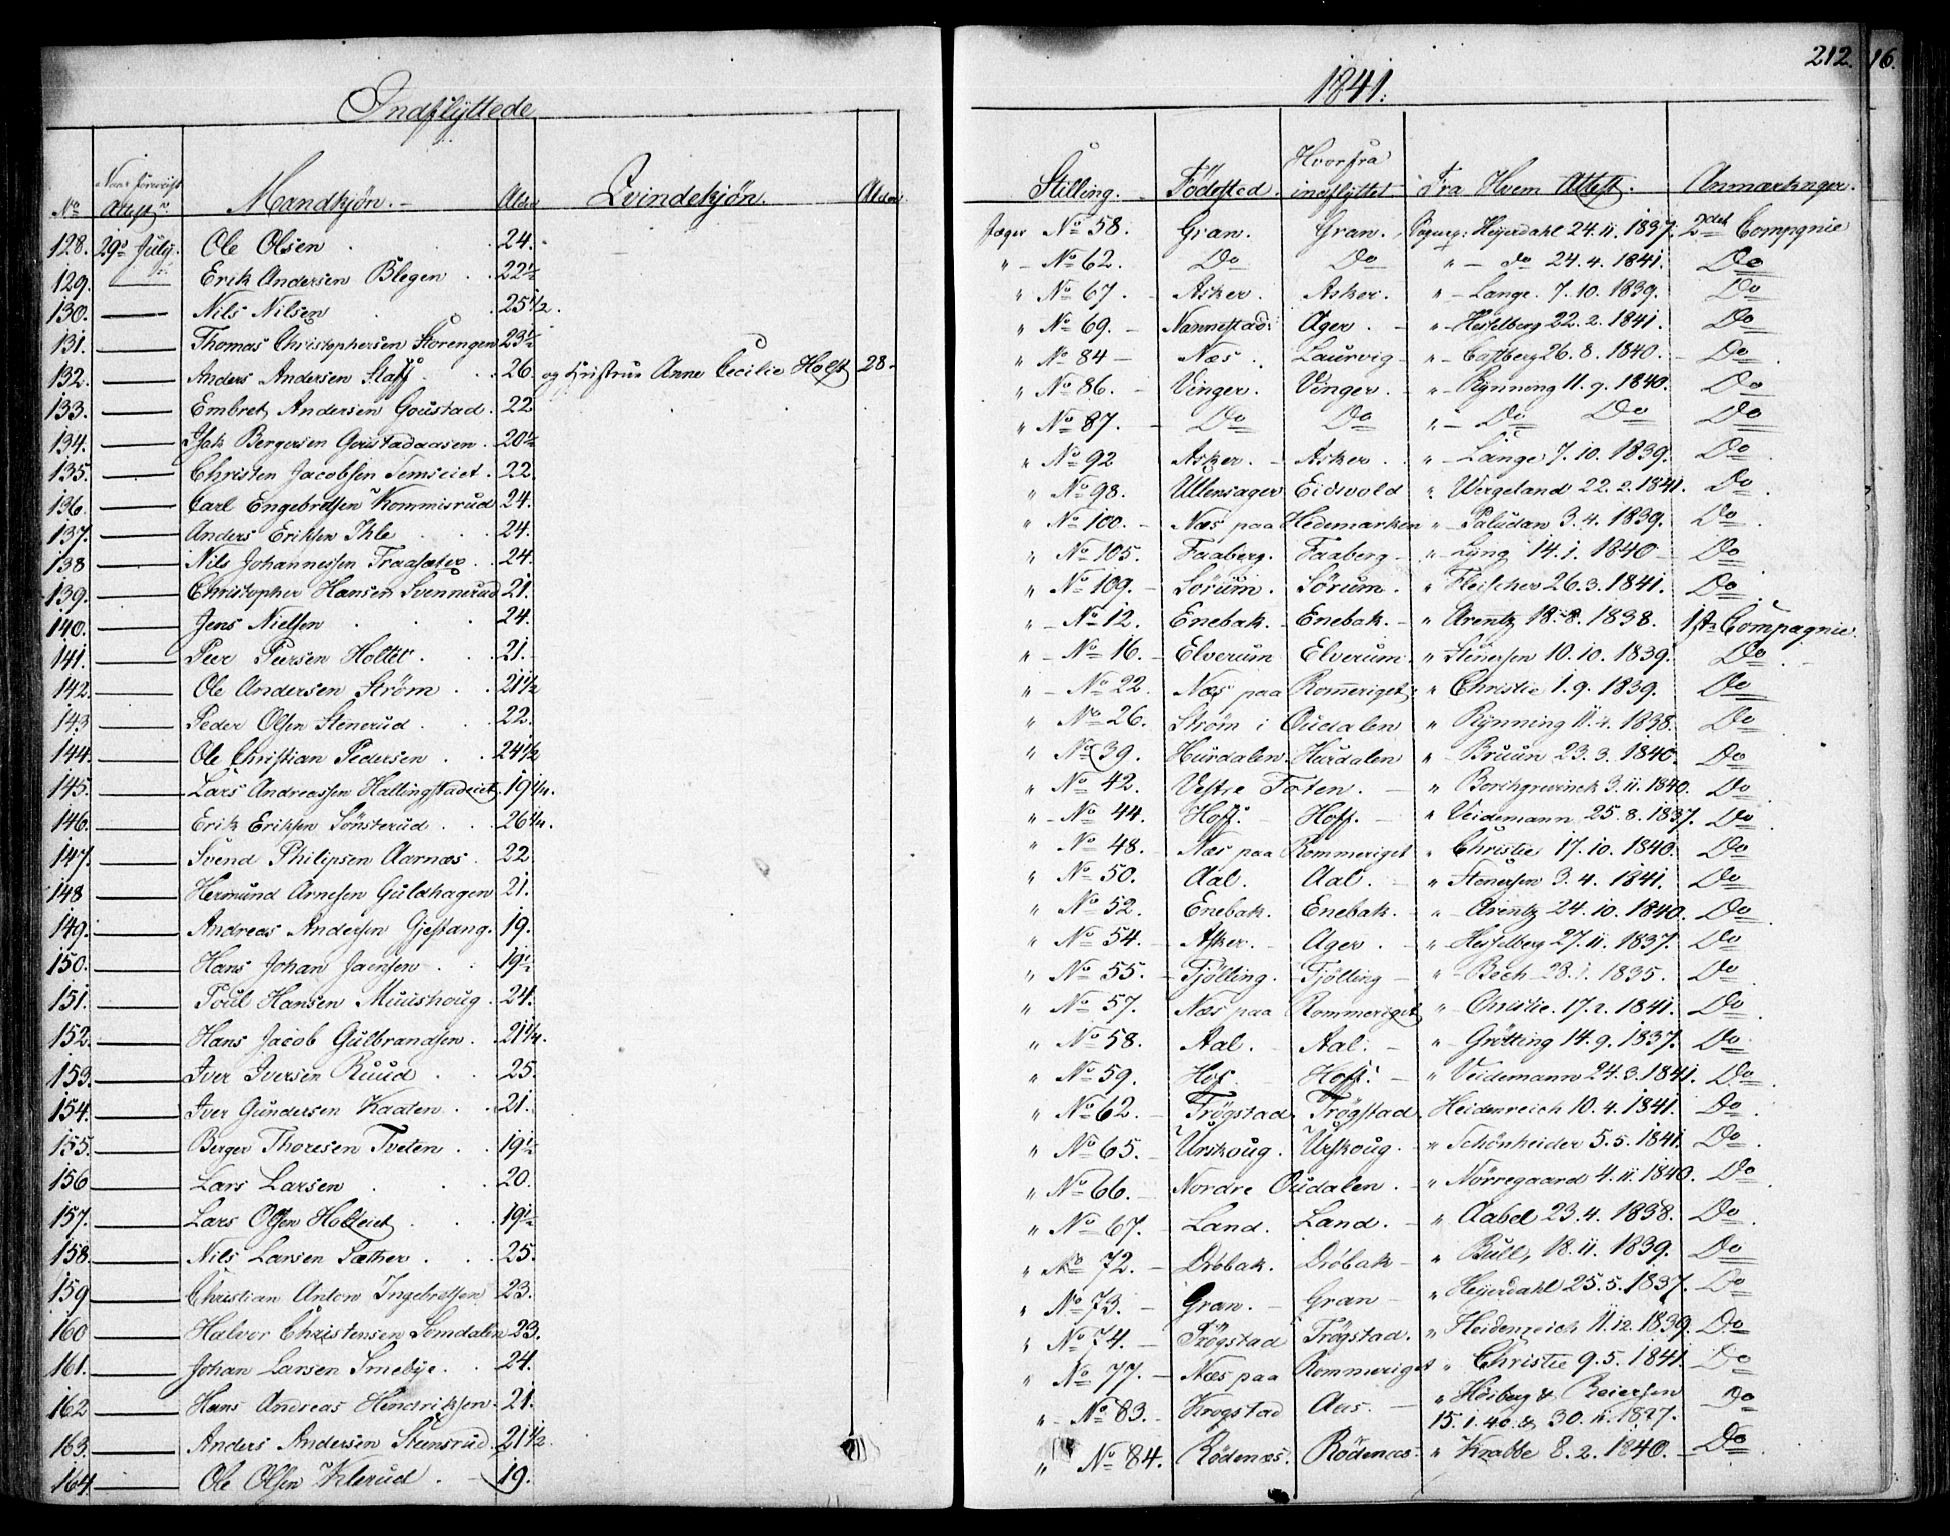 212. 16.
Indflyttede
1841.
No. Attest Mandkjøn. Alder Qvindekjøn. Alder Stilling. Fødested. Hvorfra indflyttet Fra Hvem Attest. Anmærkninger.
128. 29de July. Ole Olsen 24. Jæger No 58. Gran. Gran. Heyerdahl 24.11.1837. 2det Compagnie
129. Do Erik Andersen Blegen 22½ " No 62. Do Do " do 24.4.1841. Do
130. — Nils Nilsen 25½. " No 67. Asker. Asker. " Lange. 7.10.1839. Do
131. — Thomas Christophersen Storengen 23½ " No 69. Nannestad. Ager. " Hesselberg 22.2.1841. Do
132. — Anders Andersen Staff 26. og Hustrue Anne Cecilie Holst 28. " No 84 Næs. Laurvig " Castberg 26.8.1840. Do
133. — Embret Andersen Goustad. 22 " No 86. Vinger. Vinger. " Rynning 11.9.1840. Do
134. — Isak Bergersen Goustadaasen. 20½ " No 87. Do Do " Do Do Do
135. — Christen Jacobsen Semseiet. 22. " No 92 Asker. Asker. " Lange 7.10.1839. Do
136. — Carl Engebretsen Kommisrud 24. " No 98. Ullensager Eidsvold " Wergeland 22.2.1841. Do
137. — Anders Eriksen Ihle 24. " No 100. Næs paa Hedemarken " Paludan 3.4.1839. Do
138 — Nils Johannessen Traasæter 24. " No 105. Faaberg. Faaberg " Lyng 14.1.1840 Do
139. — Christopher Hansen Svennerud 21. " No 109. Sørum. Sørum. " Fleischer 26.3.1841. Do
140. — Jens Nielsen 24. " No 12. Enebak. Enebak. " Arentz 18.8.1838. 1ste Compagnie
141. — Peer Peersen Holtet. 21. " No 16. Elverum Elverum. " Stenersen 10.10.1839. Do
142. — Ole Andersen Strøm 21½ " No 22. Næs paa Romeriget " Christie 1.9.1839. Do
143 — Peder Olsen Stenerud 22. " No 26. Strøm i Oudalen " Rynning 11.4.1838. Do
144. — Ole Christian Pedersen 24½ " No 39. Hurdalen. Hurdalen " Bruun 23.3.1840. Do
145. — Lars Andreassen Hallingstadeiet 19¼. " No 42. Vestre Toten. " Borchgrevinck 3.11.1840. Do
146. — Erik Eriksen Sønsterud 26¼. " No 44. Hoff. Hoff. " Veidemann 25.8.1837. Do
147. — Svend Philipsen Aarnæs. 22 " No 48. Næs paa Rommeriget " Christie 17.10.1840. Do
148 — Hermund Arnesen Guldhagen 21. " No 50. Aal. Aal. " Stenersen 3.4.1841. Do
149. — Andreas Andersen Gjestang. 19. " No 52. Enebak. Enebak. " Arentz 24.10.1840. Do
150. — Hans Johan Jaensen 19½ " No 54. Asker. Ager. " Hesselberg 27.11.1837. Do
151. — Poul Hansen Muushoug. 24. " No 55. Tjølling. Tjølling " Bech 28.1.1835. Do
152. — Hans Jacob Gulbrandsen. 21¼. " No 57. Næs paa Rommeriget " Christie. 17.2.1841. Do
153. — Iver Iversen Ruud 25. " No 58. Aal. Aal. " Grötting 14.9.1837. Do
154. — Iver Gundersen Kaaten. 21. " No 59. Hof. Hoff. " Veidemann 24.3.1841. Do
155. — Berger Thoresen Tveten 19½ " No 62. Trögstad. Trögstad. Heidenreich 10.4.1841. Do
156 — Lars Larsen 20. " No 65. Urskoug. Urskoug. " Schönheider 5.5.1841. Do
157. — Lars Olsen Holteiet 19½ " No 66. Nordre Oudalen. " Nörregaard 4.11.1840. Do
158. — Nils Larsen Sæther 25. " No 67. Land. Land. " Aabel 23.4.1838. Do
159 — Christian Anton Ingebretsen 23. " No 72. Dröbak. Dröbak " Bull, 18.11.1839. Do
160 — Halvor Christensen Semdalen 23. " No 73. Gran. Gran " Heyerdahl 25.5.1837. Do
161. — Johan Larsen Smebye. 24. " No 74. Trögstad Trögstad. " Heidenreich 11.12.1839. Do
162 — Hans Andreas Hendriksen. 21. " No 77. Næs paa Rommeriget " Christie 9.5.1841. Do
163. — Anders Andersen Stensrud. 21½. " No 83. Krogstad Aas. " Höiberg & Reiersen 15.1.40 & 30.11.1827. Do
164 — Ole Olsen Klerud. 19. " No 84. Rödenæs. Rödenæs. " Krabbe 8.2.1840. Do